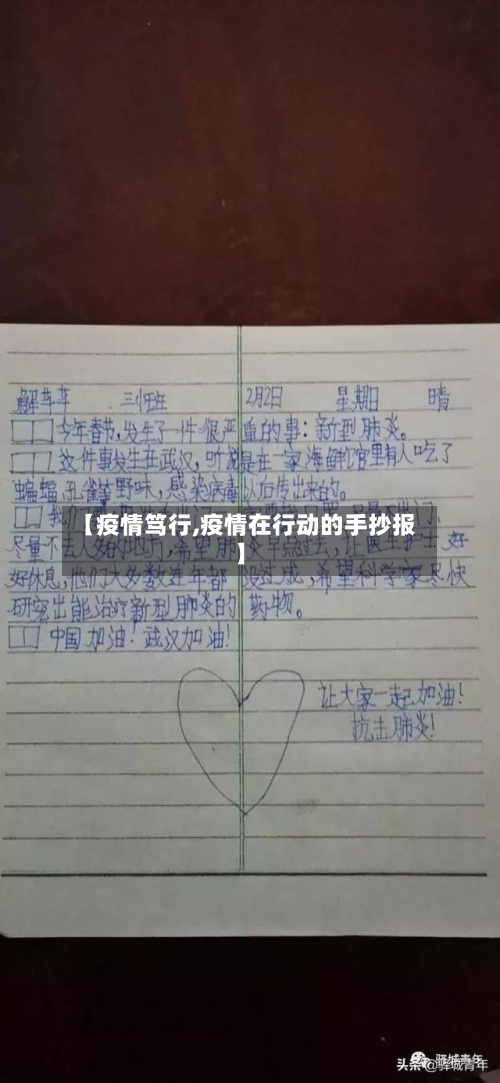 解苹苹 三(1)班 2月2日 星期日 晴
今年春节,发生了一件很严重的事:新型肺炎。
这件事发生在武汉,听说是在一家海鲜馆里有人吃了
蝙蝠 孔雀等野味,感染病毒以后传出来的。
我们
【疫情笃行,疫情在行动的手抄报
】
尽量不去人多的地方,希望肺炎早点过去,让医生护士好
好休息,他们大多数连年都没过成,希望科学家尽快
研究出能治疗新型肺炎的药物。
中国加油!武汉加油!
让大家一起加油!
抗击肺炎!
驿城青年
头条@驿城青年